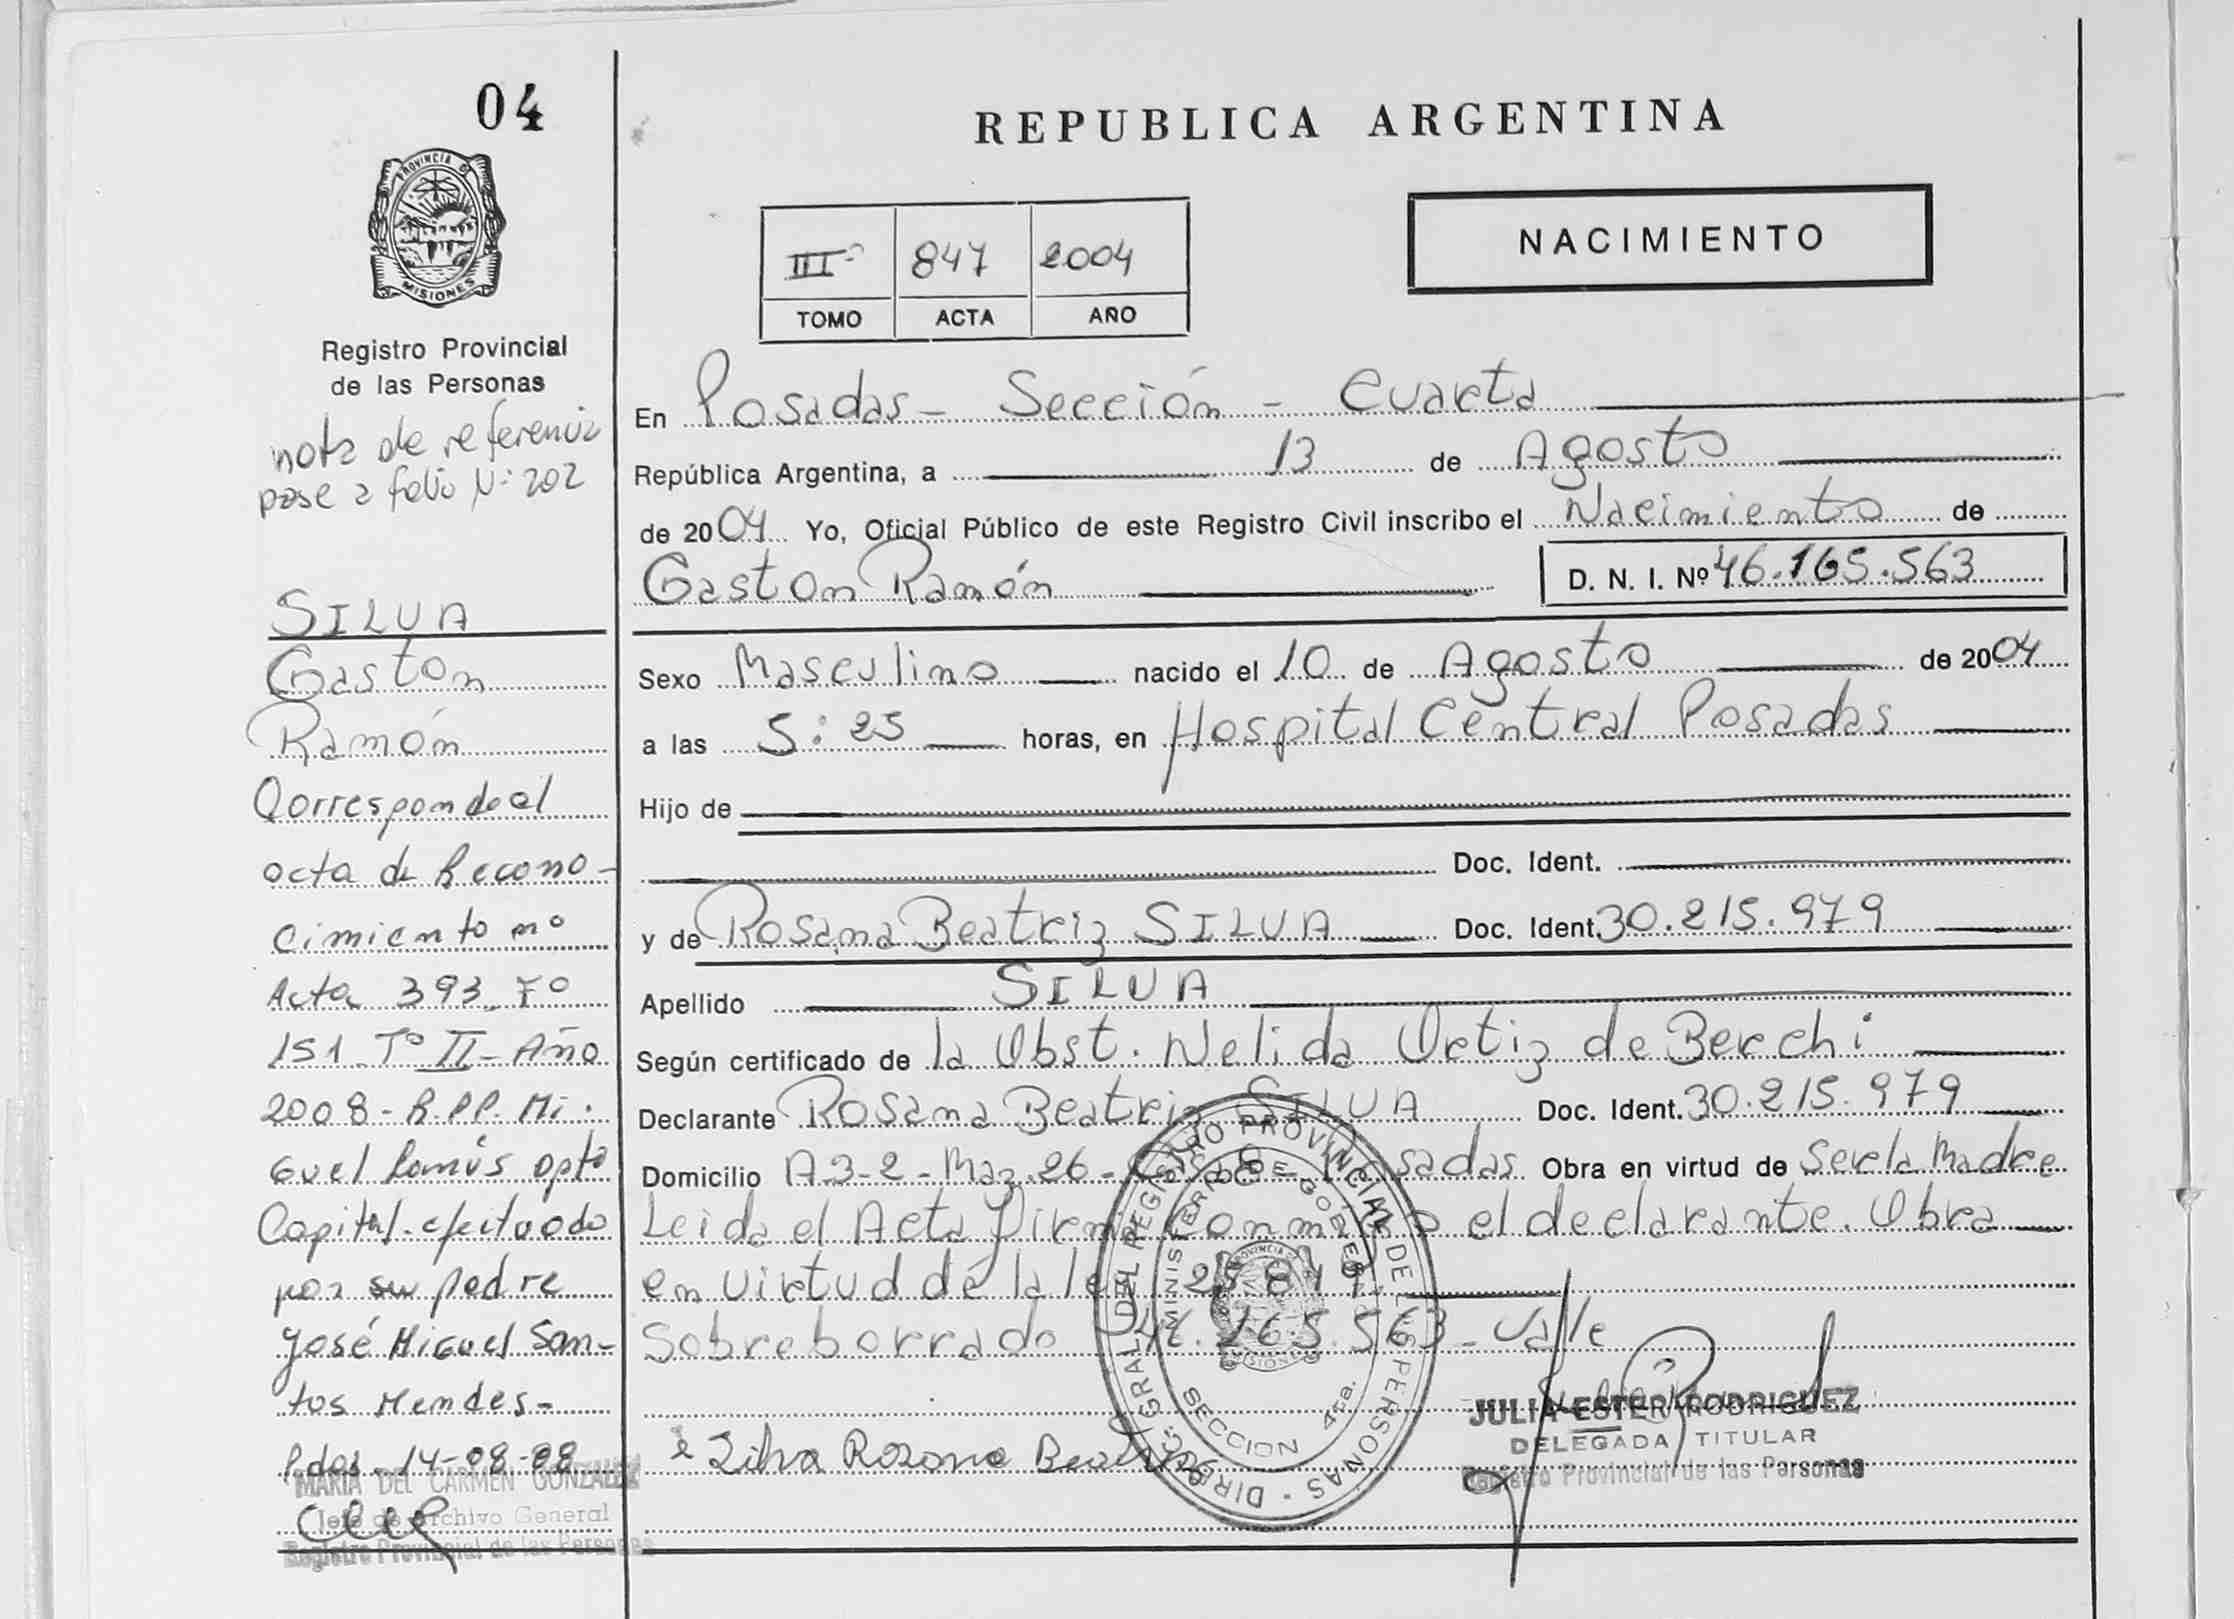 04
PROVINCIA DE
MISIONES
Registro Provincial
de las Personas
nota de referencia
pase a folio N: 202
SILVA
Gaston
Ramón
Corresponde al
acta de Recono-
cimiento nº
Acta 393 Fº
151 Tº II - Año
2008 - R.PP. Mi.
guel Lanús Dpto
Capital. efectuado
por su padre
José Miguel San-
tos Mendes -
Pdas. 14-08-08
MARIA DEL CARMEN GONZALEZ
Jefe de Archivo General
Registro Provincial de las Personas
REPUBLICA ARGENTINA
III º 847 2004
TOMO ACTA AÑO
NACIMIENTO
En Posadas - Sección - Cuarta
República Argentina, a 13 de Agosto
de 2004 Yo, Oficial Público de este Registro Civil inscribo el Nacimiento de
Gaston Ramón D. N. I. Nº 46.165.563
Sexo Masculino nacido el 10 de Agosto de 2004
a las 5:25 horas, en Hospital Central Posadas
Hijo de
Doc. Ident.
y de Rosana Beatriz SILVA Doc. Ident. 30.215.979
Apellido SILVA
Según certificado de la Obst. Nelida Ortiz de Berchi
Declarante Rosana Beatriz SILVA Doc. Ident. 30.215.979
Domicilio A-3-2 - Maz. 26 - Casa 8 - Posadas Obra en virtud de Ser la Madre
Leida el Acta firma Conmigo el declarante. Obra
en virtud de la ley
Sobreborrado 46.165.563 - Valle
Silva Rosana Beatriz
DIRECC. GRAL. DEL REGISTRO PROVINCIAL DE LAS PERSONAS
MINISTERIO DE GOBIERNO
PROVINCIA DE
MISIONES
SECCION 4ta.
JULIA ESTER RODRIGUEZ
DELEGADA TITULAR
Registro Provincial de las Personas